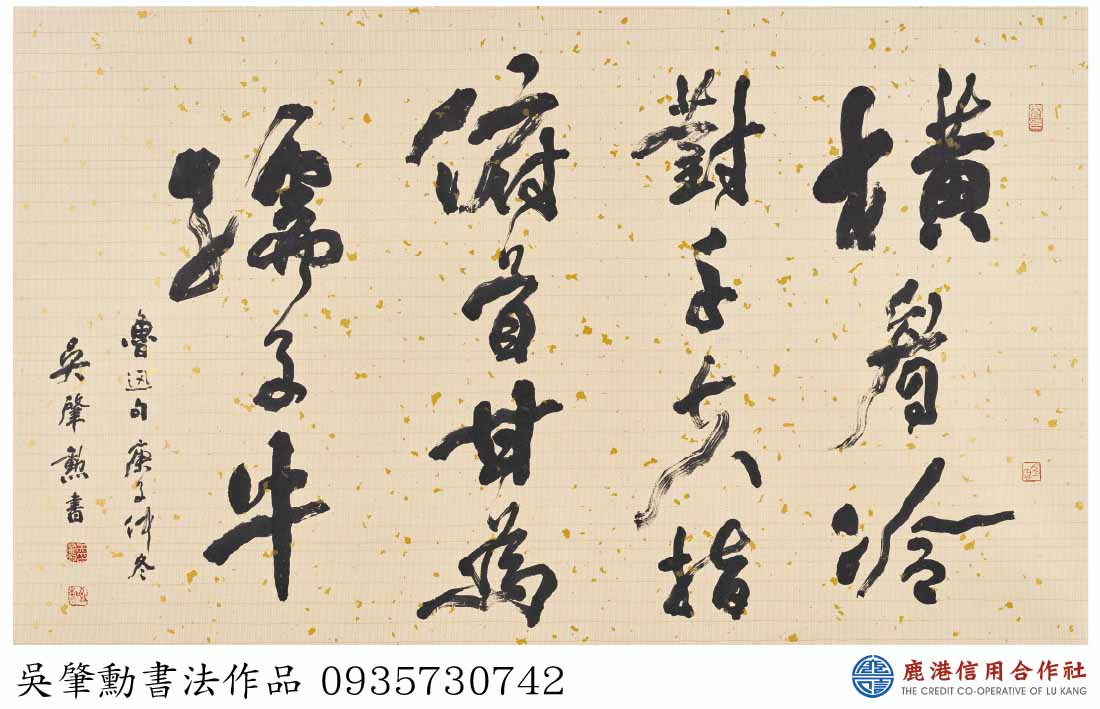 橫眉冷
對千夫指
俯首甘為
孺子牛
魯迅句庚子仲冬
吳肇勳書
吳肇勳書法作品 0935730742
鹿港信用合作社
THE CREDIT CO-OPERATIVE OF LU KANG